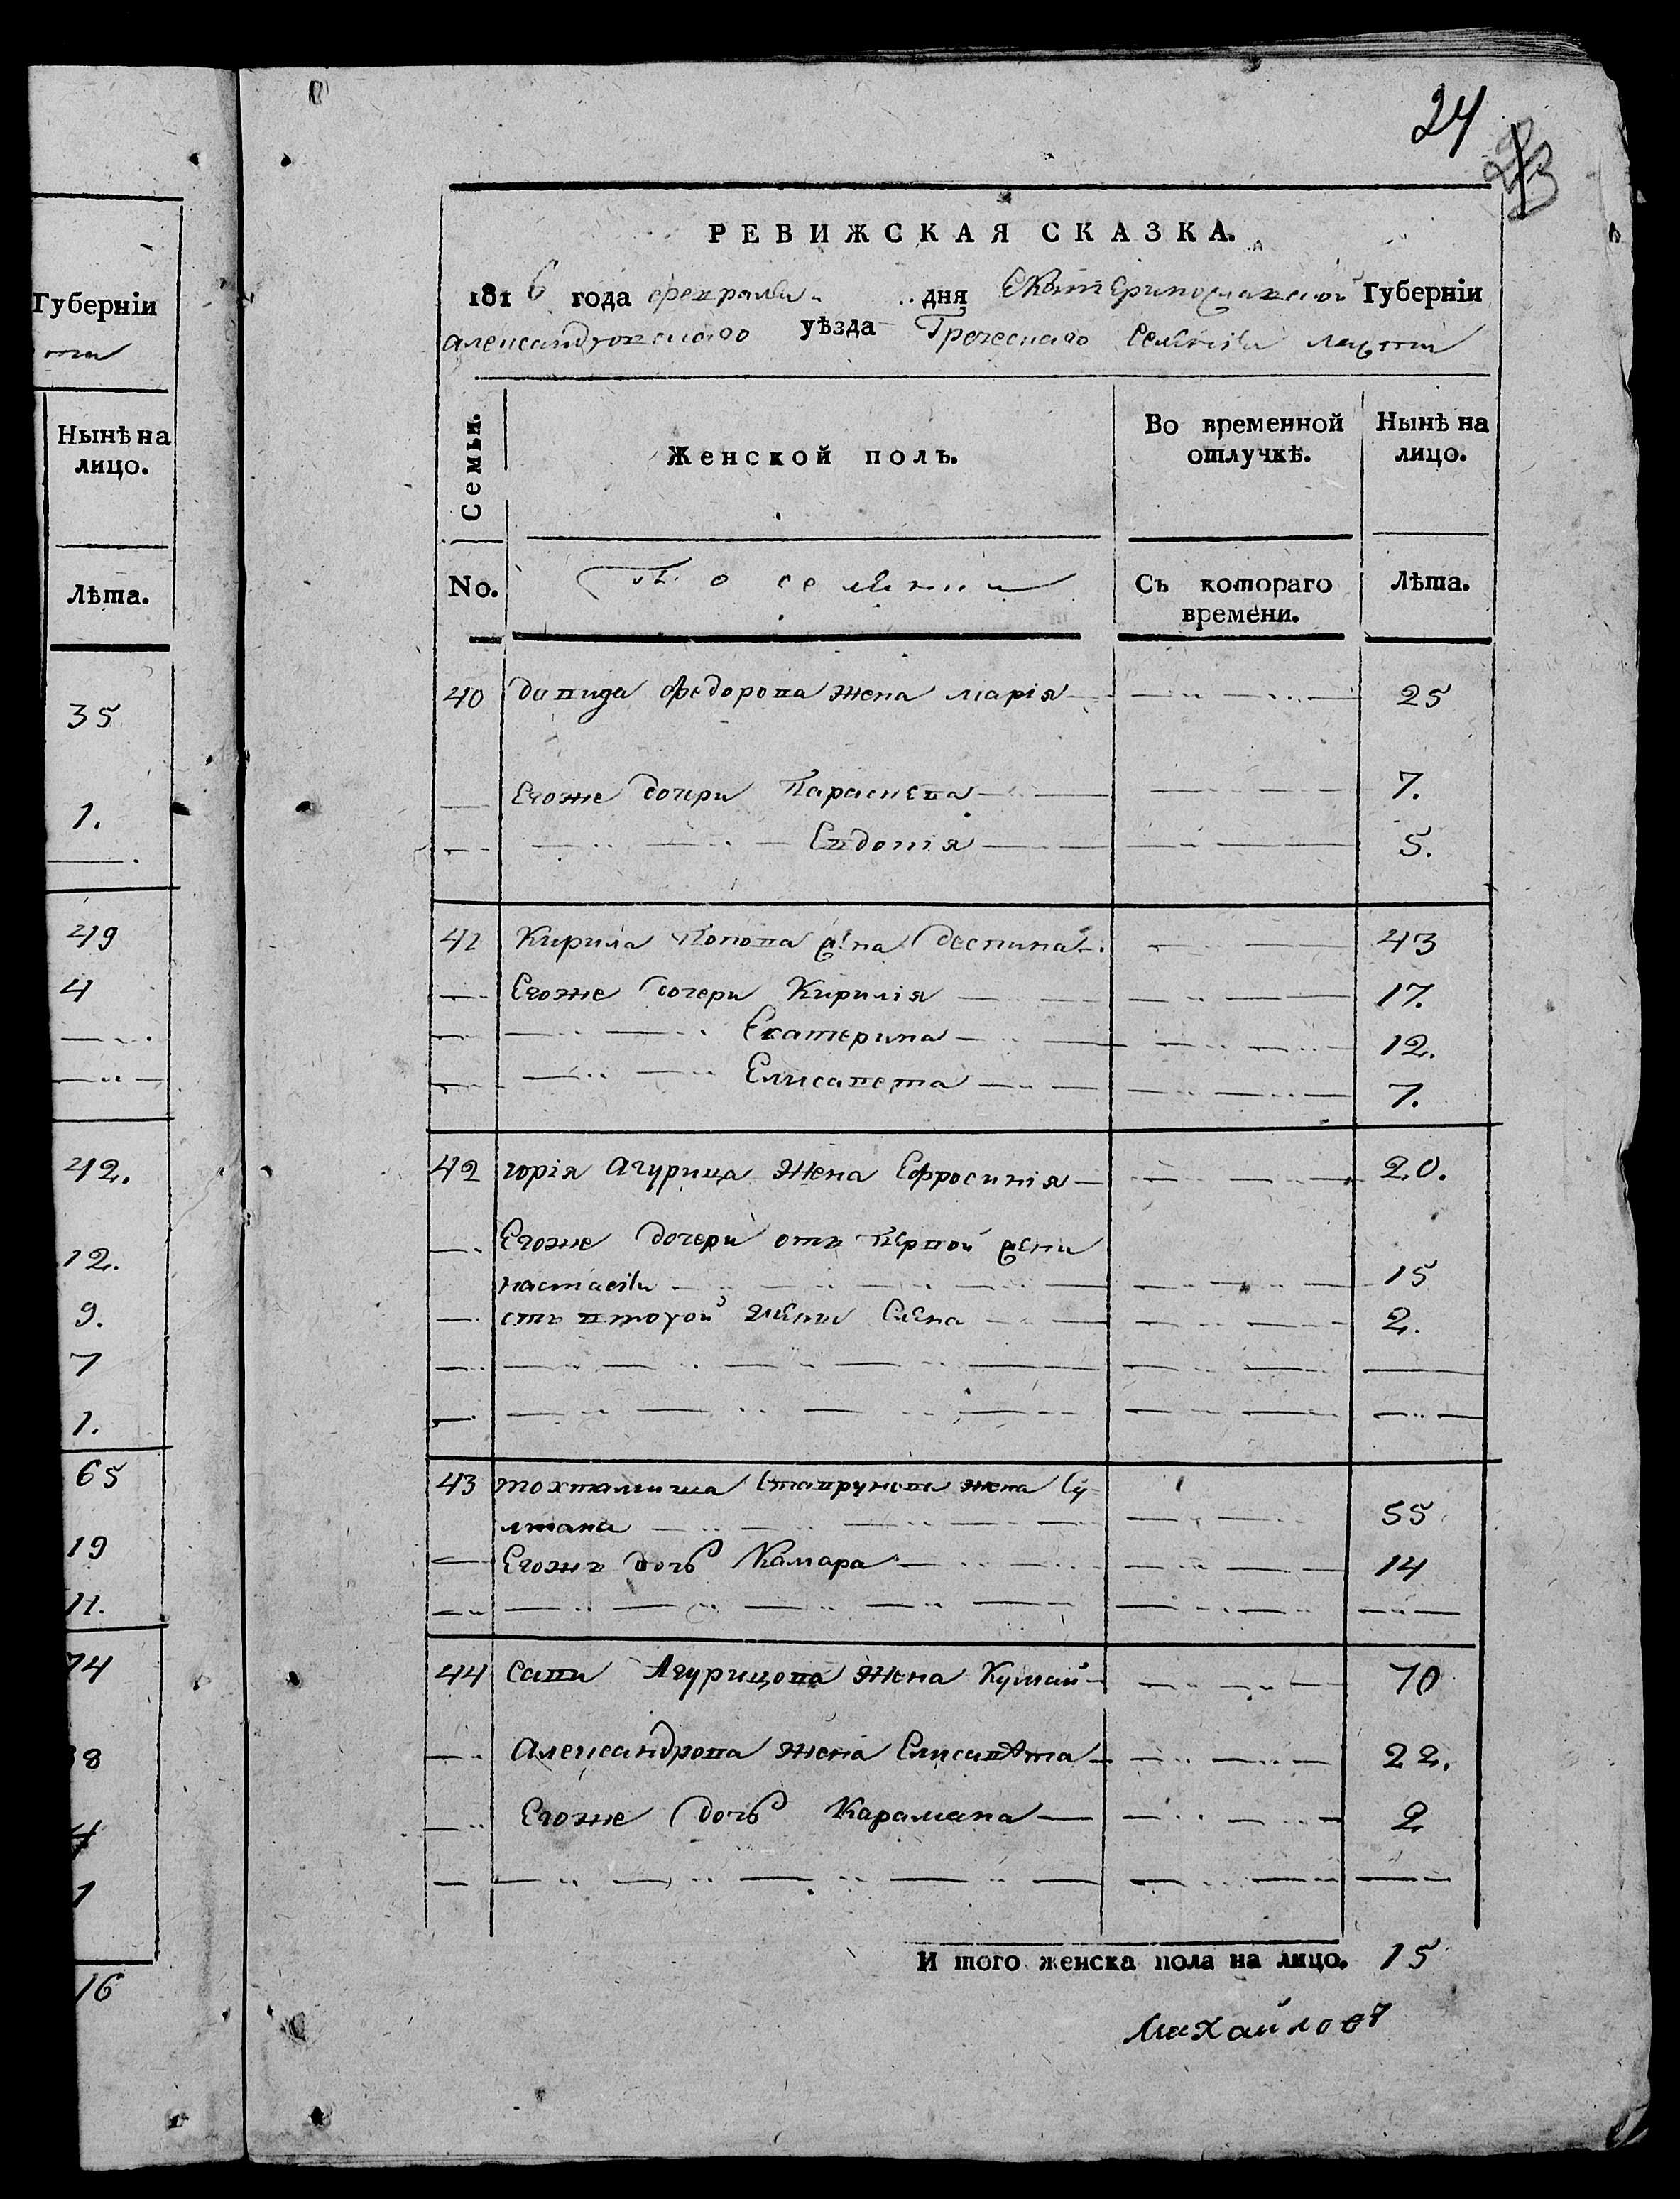 Губерніи
Нынѣ на
лицо.
Лѣта.
35
1.
49
4
42.
12.
9.
7
1.
65
19
11.
74
8
4
1
16
24
23
РЕВИЖСКАЯ СКАЗКА.
1816 года февраля дня Екатеринославской Губерніи
александровскаго уѣзда Греческаго селенія
Семьи.
Женской полъ.
Во временной
отлучкѣ.
Нынѣ на
лицо.
No.
Съ котораго
времени.
Лѣта.
40 давида Федорова жена марія 25
Егоже дочери Параскева 7.
Евдокія 5.
41 Кирила Попова жена деспина 43
Егоже дочери Кирилія 17.
Екатерина 12.
Елисавета 7.
42 горія Агурица жена Ефросинія 20.
Егоже дочери отъ первой жени
настасія 15
отъ второй жени Елена 2.
43 тохтамиша жена Су-
лтана 55
Егожъ дочь Камара 14
44 сави Агурицова жена Кумай 70
Александрова жена Елисавета 22.
Егоже дочь Карамана 2
И того женска пола на лицо. 15
Михайловъ